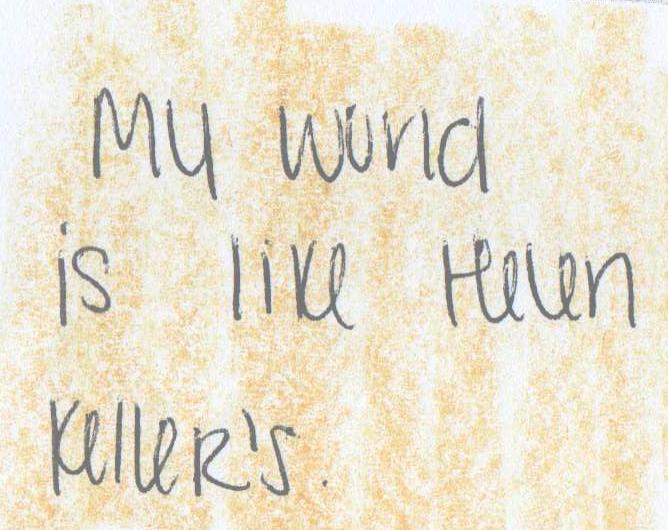 My world
is like Helen
Keller's.